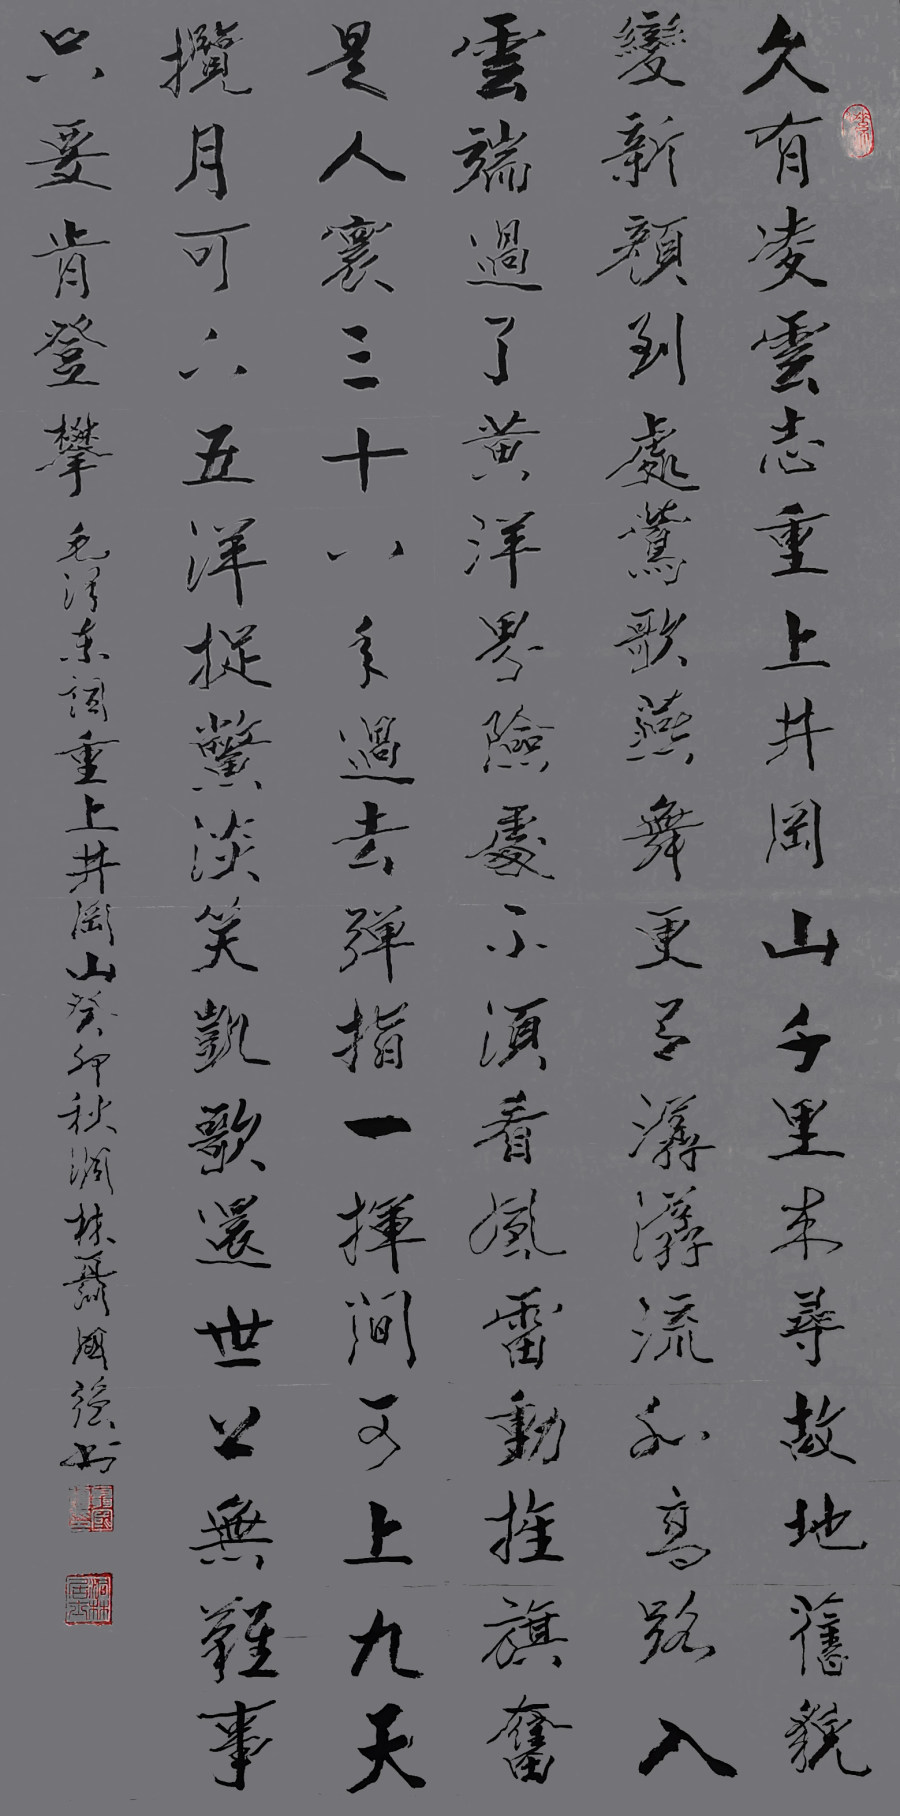 久有凌雲志重上井岡山千里來尋故地舊貌
變新顏到處鶯歌燕舞更有潺潺流水高路入
雲端過了黃洋界險處不須看風雷動旌旗奮
是人寰三十八年過去彈指一揮間可上九天
攬月可下五洋捉鱉談笑凱歌還世上無難事
只要肯登攀 毛澤東詞重上井岡山癸卯秋林聶國強書